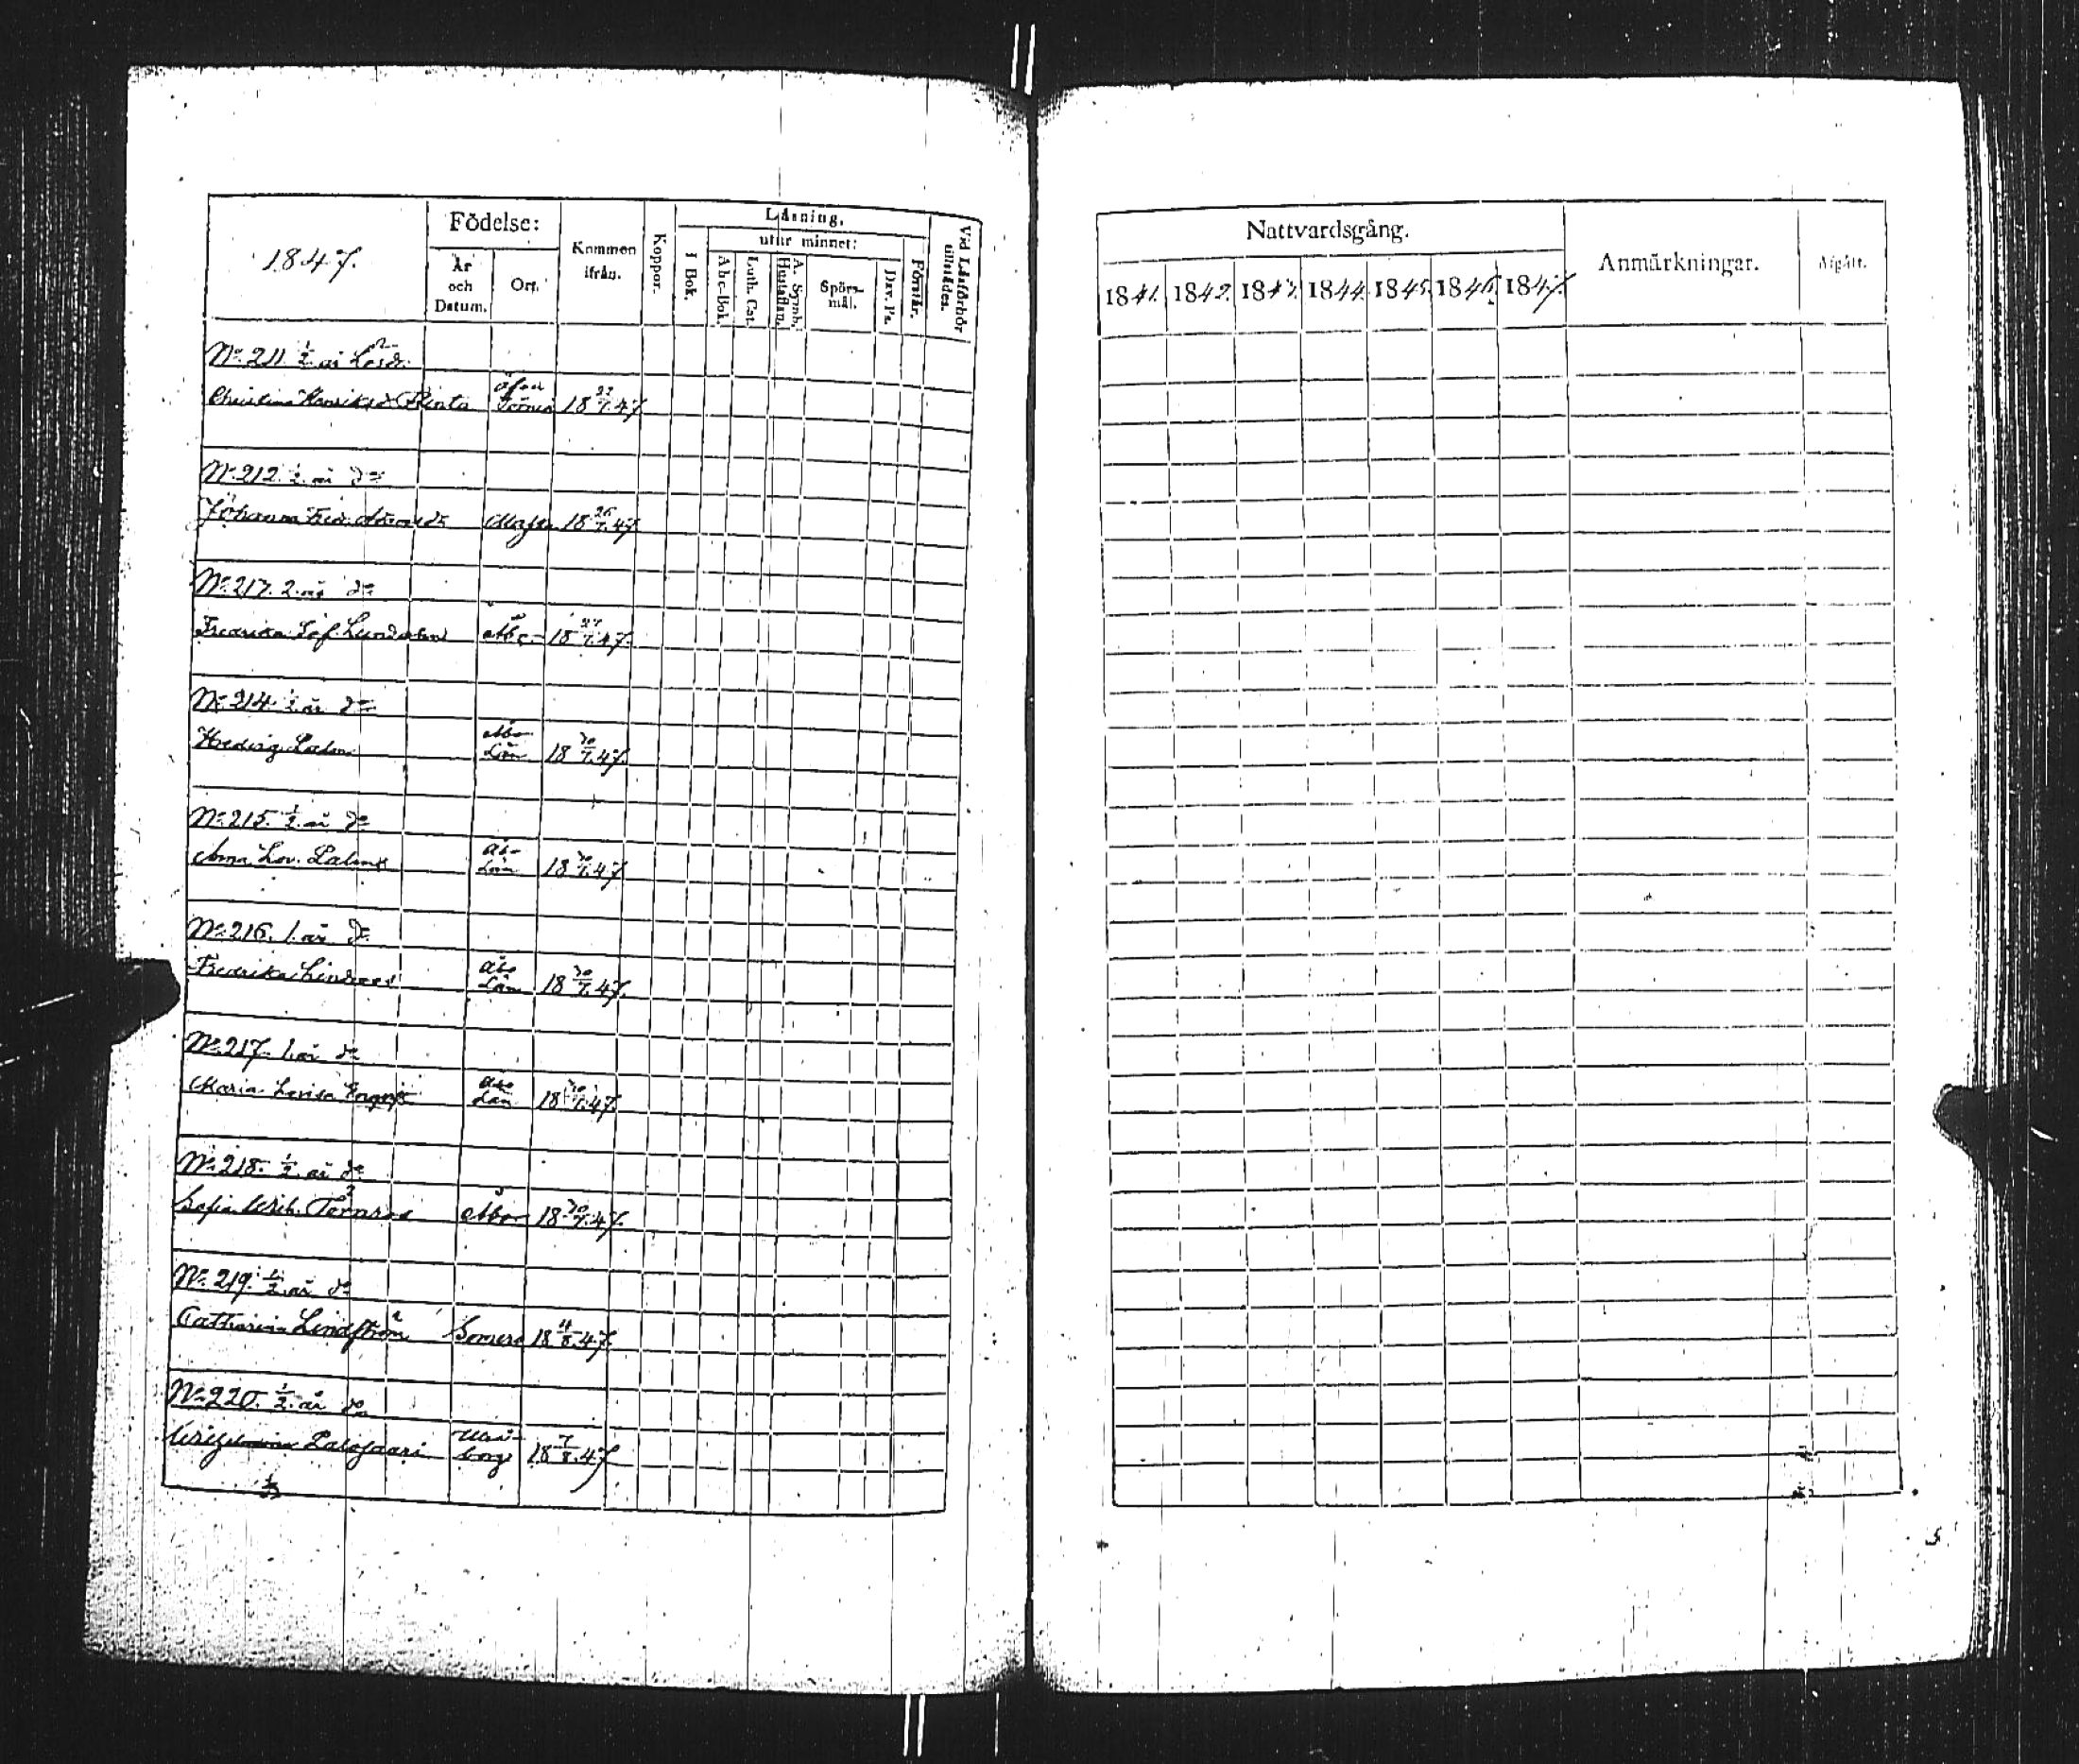 1847.
Födelse:
År
och
Datum.
Ort.
Kommen
ifrån.
Koppor.
Läsning.
I Bok.
utur minnet:
Abc-Bok.
Luth. Cat.
A. Symb.
Hustaflan.
Spörs-
mål.
Dav. Ps.
Förstår.
Vid Läsförhör
tillstädes.
Nº 211 ½ år
Christina Henriksdr
Torneå 18 7.47
Nº 212. ½ år do
Johanna 18 26/7.47
2 år do
Fredrika Sof. Lundsten Åbo 18 27/7.47.
Nº 214 ½ år do
Hedvig Åbo
Län 18 30/7.47.
Nº 215. ½ år do
Anna Lov. Åbo
Län 18 30/7.47
Nº 216. 1. år do
Fredrika Lindroos Åbo
Län 18 30/7.47.
Nº 217. 1. år do
Maria Lovisa Åbo
Län 18 30/7.47.
Nº 218. ½ år do
Sofia Törnroos Åbo 18 30/7.47.
Nº 219. ½ år do
Catharina Lindström Somero 18 4/8.47.
Nº 220. ½ år do
Uleå-
borg 18 7/8.47
Nattvardsgång.
1841. 1842. 1843. 1844. 1845. 1846. 1847.
Anmärkningar.
Afgått.